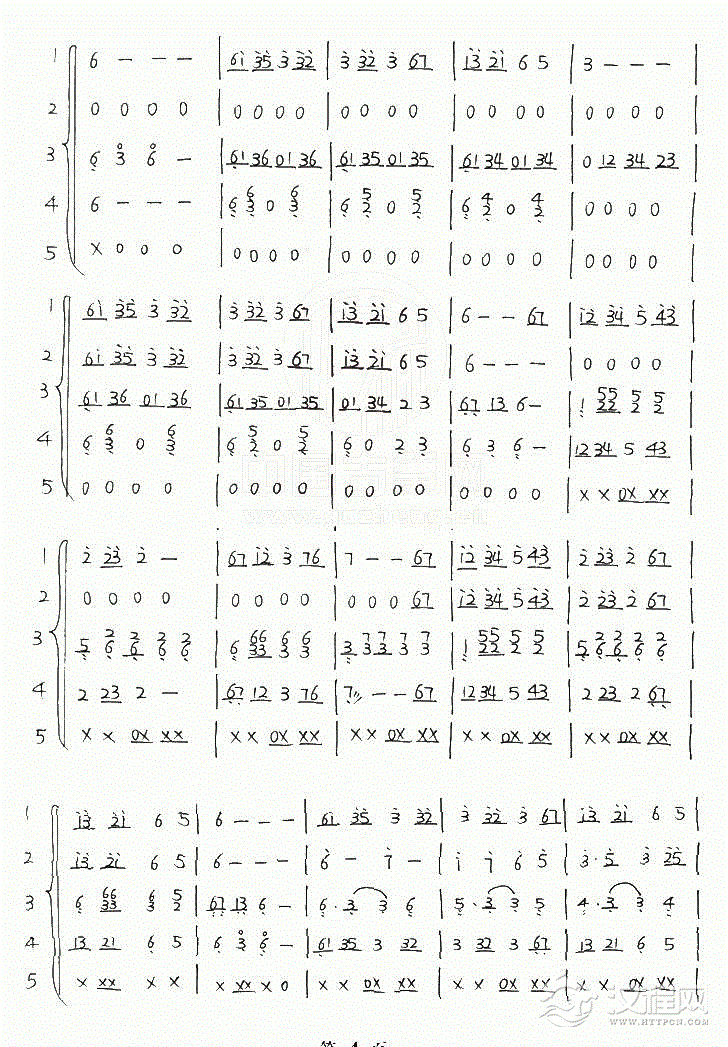 1 6 - - - | 6i 35 3 32 | 3 32 3 67 | i3 2i 6 5 | 3 - - - |
2 0 0 0 0 | 0 0 0 0 | 0 0 0 0 | 0 0 0 0 | 0 0 0 0 |
3 6 3 6 - | 61 36 01 36 | 61 35 01 35 | 61 34 01 34 | 0 12 34 23 |
4 6 - - - | 6 6/3 0 6/3 | 6 5/2 0 5/2 | 6 4/2 0 4/2 | 0 0 0 0 |
5 X 0 0 0 | 0 0 0 0 | 0 0 0 0 | 0 0 0 0 | 0 0 0 0 |
1 6i 35 3 32 | 3 32 3 67 | i3 2i 6 5 | 6 - - 67 | i2 34 5 43 |
2 6i 35 3 32 | 3 32 3 67 | i3 2i 6 5 | 6 - - - | 0 0 0 0 |
3 61 36 01 36 | 61 35 01 35 | 01 34 2 3 | 67 13 6 - | 1 55/22 5/2 5/2 |
4 6 6/3 0 6/3 | 6 5/2 0 5/2 | 6 0 2 3 | 6 3 6 - | 12 34 5 43 |
5 0 0 0 0 | 0 0 0 0 | 0 0 0 0 | 0 0 0 0 | X X 0X XX |
1 2 23 2 - | 67 i2 3 76 | 7 - - 67 | i2 34 5 43 | 2 23 2 67 |
2 0 0 0 0 | 0 0 0 0 | 0 0 0 67 | i2 34 5 43 | 2 23 2 67 |
3 5 2/6 6 2/6 2/6 | 6 66/33 6/3 6/3 | 3 7/3 7/3 7/3 7/3 | 1 55/22 5/2 5/2 | 5 2/6 2/6 2/6 2/6 |
4 2 23 2 - | 67 12 3 76 | 7 - - 67 | 12 34 5 43 | 2 23 2 67 |
5 X X 0X XX | X X 0X XX | X X 0X XX | X X 0X XX | X X 0X XX |
1 i3 2i 6 5 | 6 - - - | 6i 35 3 32 | 3 32 3 67 | i3 2i 6 5 |
2 i3 2i 6 5 | 6 - - - | 6 - 7 - | i 7 6 5 | 3 · 5 3 25 |
3 6 66/33 6/3 5/2 | 67 13 6 - | 6 · 3 3 6 | 5 · 3 3 5 | 4 · 3 3 4 |
4 13 21 6 5 | 6 3 6 - | 61 35 3 32 | 3 32 3 67 | 13 21 6 5 |
5 X XX X X | X XX X 0 | X X 0X XX | X X 0X XX | X X 0X XX |
汉程网
HTTPCN.COM